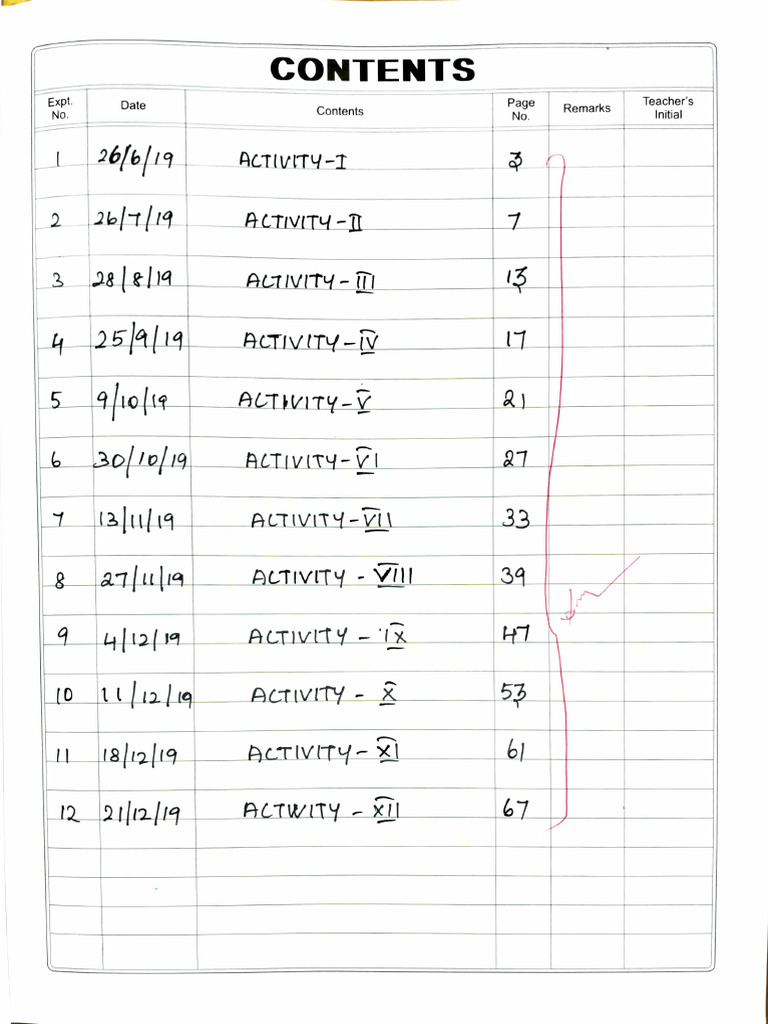 CONTENTS
Expt. No. Date Contents Page No. Remarks Teacher's Initial
1 26/6/19 ACTIVITY-I 3
2 26/7/19 ACTIVITY-II 7
3 28/8/19 ACTIVITY-III 13
4 25/9/19 ACTIVITY-IV 17
5 9/10/19 ACTIVITY-V 21
6 30/10/19 ACTIVITY-VI 27
7 13/11/19 ACTIVITY-VII 33
8 27/11/19 ACTIVITY - VIII 39
9 4/12/19 ACTIVITY - IX 47
10 11/12/19 ACTIVITY - X 53
11 18/12/19 ACTIVITY-XI 61
12 21/12/19 ACTIVITY - XII 67